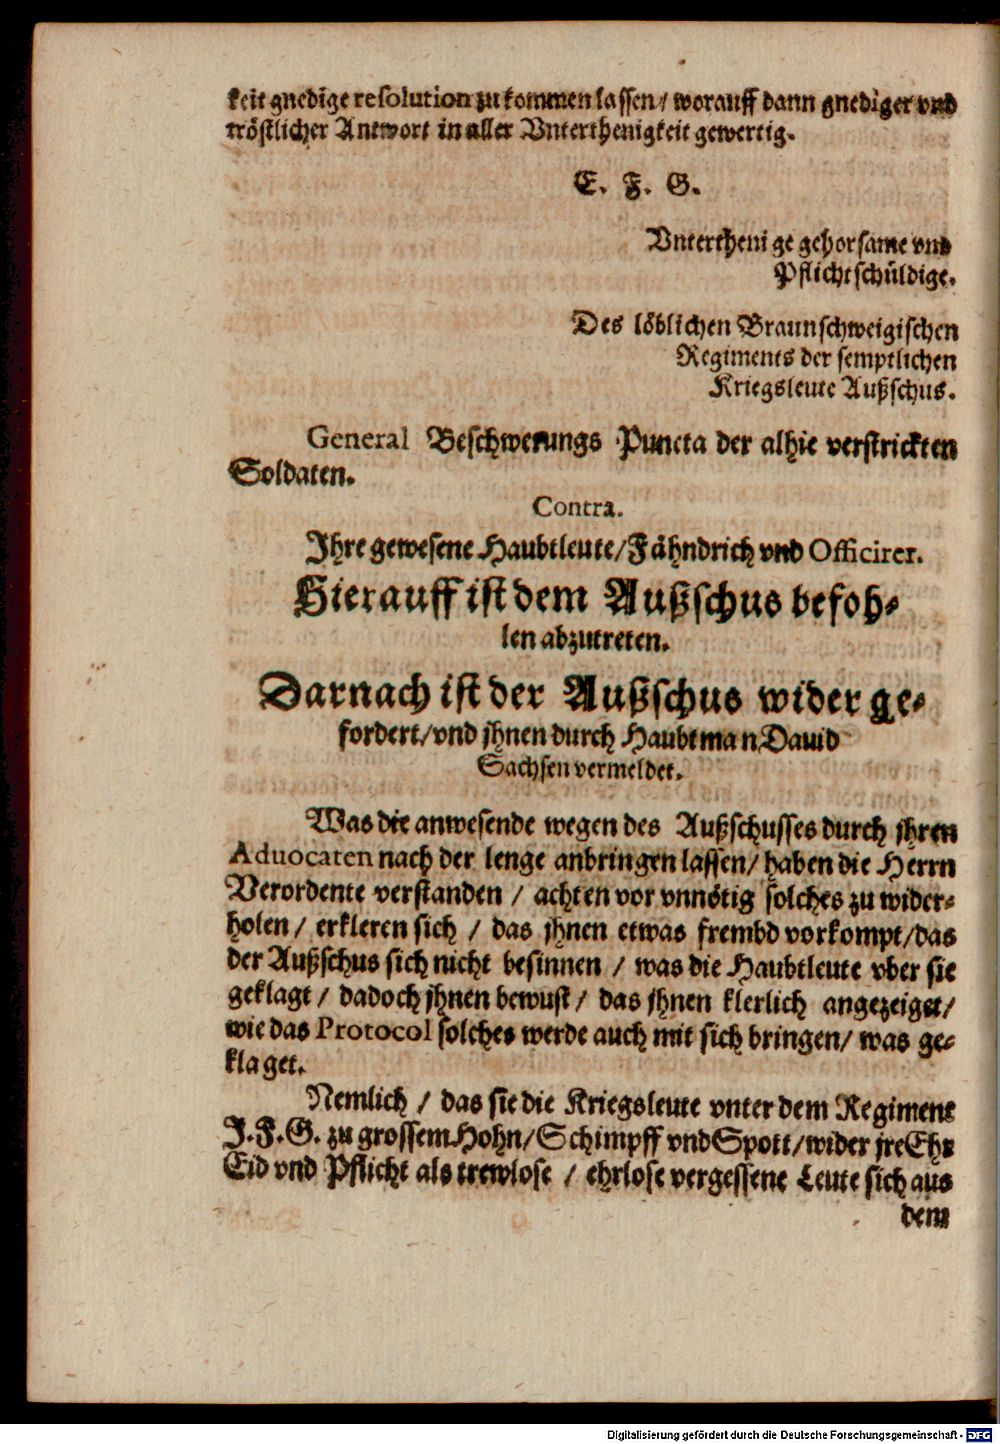 keit gnedige resolution zu kommen lassen / worauff dann gnediger vnd
tröstlicher Antwort in aller Vnterthenigkeit gewertig.
E. F. G.
Vnterthenige gehorsame vnd
Pflichtschüldige.
Des löblichen Braunschweigischen
Regiments der semptlichen
Kriegsleute Außschus.
General Beschwerungs Puncta der alhie verstrickten
Soldaten.
Contra.
Ihre gewesene Haubtleute/Fähndrich vnd Officirer.
Hierauff ist dem Außschus befoh-
len abzutreten.
Darnach ist der Außschus wider ge-
fordert/vnd jhnen durch Haubtman Dauid
Sachsen vermeldet.
Was die anwesende wegen des Außschusses durch jhren
Aduocaten nach der lenge anbringen lassen/ haben die Herrn
Verordente verstanden / achten vor vnnötig solches zu wider-
holen / erkleren sich / das jhnen etwas frembd vorkompt/das
der Außschus sich nicht besinnen / was die Haubtleute vber sie
geklagt / dadoch jhnen bewust / das jhnen klerlich angezeiget/
wie das Protocol solches werde auch mit sich bringen/ was ge-
klaget.
Nemlich / das sie die Kriegsleute vnter dem Regiment
J.F.G. zu grossem Hohn/Schimpff vnd Spott/wider jre Ehr
Eid vnd Pflicht als trewlose / ehrlose vergessene Leute sich aus
dem
Digitalisierung gefördert durch die Deutsche Forschungsgemeinschaft - DFG